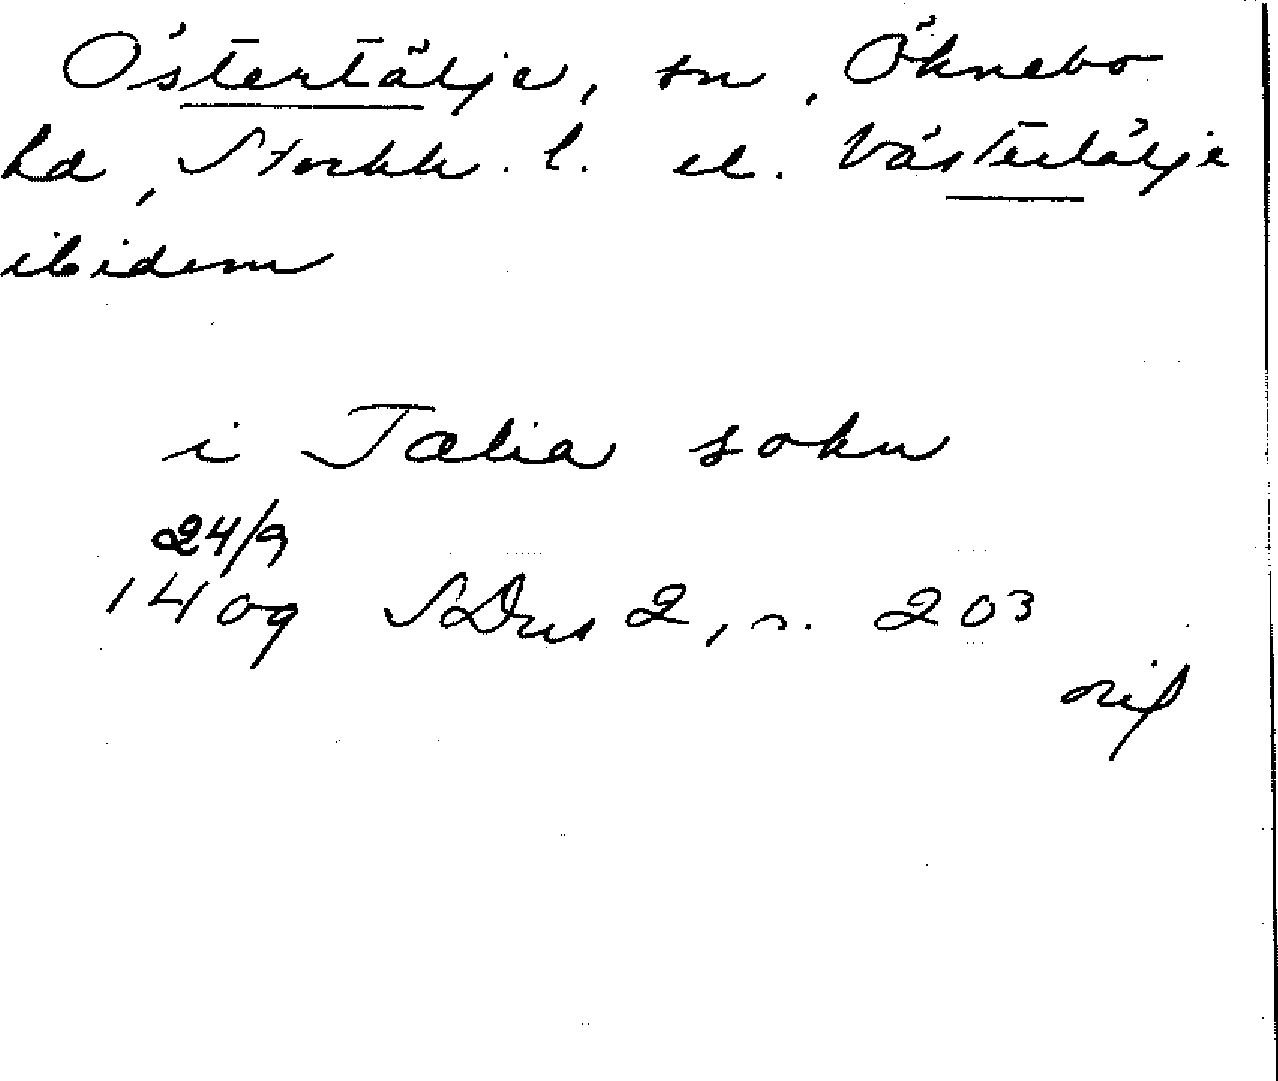 Östertälje, sn, Öknebo
hd, Stockh. l. el. Västertälje
ibidem
i Tælia sokn
24/9
1409 SDns 2, s. 203